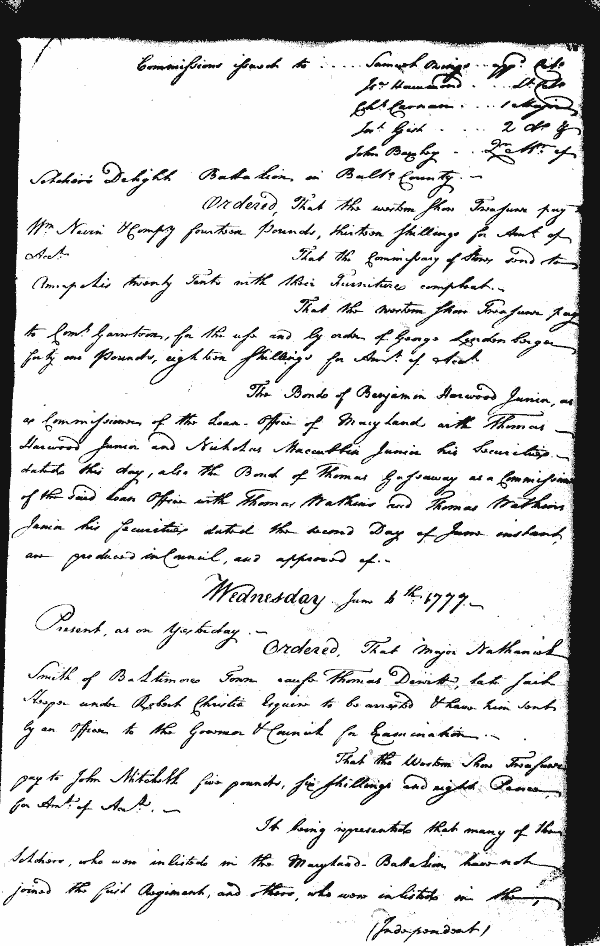 Commissions issued to ..... Samuel Owings appd. Colo
Jno Hammond .... Lt. Colo
Chs. Carnan .... 1 Major
Jos. Gist .... 2 do. &
John Bayley .. Qr. Mr. of
Soldiers Delight Battalion in Balte. County. -
Ordered, That the western Shore Treasurer pay to
Wm Nevin & Compy fourteen Pounds, thirteen Shillings for Amt. of
Acct. That the Commissary of Stores send to
Annapolis twenty Tents with their Furniture compleat. -
That the western Shore Treasurer pay
to Comr. Garretson, for the use and by order of George Leudenberger
forty one Pounds, eighteen Shillings for Amt. of Acct.
The Bonds of Benjamin Harwood Junior, as
a Commissioner of the Loan-Office of Maryland with Thomas
Harwood Junior and Nicholas Maccubbin Junior his Securities
dated this day, also the Bond of Thomas Gassaway as a Commissioner
of the said Loan Office with Thomas Watkins and Thomas Watkins
Junior his Securities dated the second Day of June instant,
are produced in Council, and approved of. -
Wednesday June 4th. 1777. -
Present, as on Yesterday. -
Ordered, That Major Nathaniel
Smith of Baltimore Town cause Thomas Dewitt, late Jail
Keeper under Robert Christie Esquire to be arrested & have him sent
by an Officer to the Governor & Council for Examination. -
That the Western Shore Treasurer
pay to John Mitchell five pounds, six Shillings and eight Pence
for Amt. of Acct. -
It being represented that many of the
Soldiers, who were inlisted in the Maryland-Battalion have not
joined the first Regiment, and others, who were inlisted in the
(Independent)